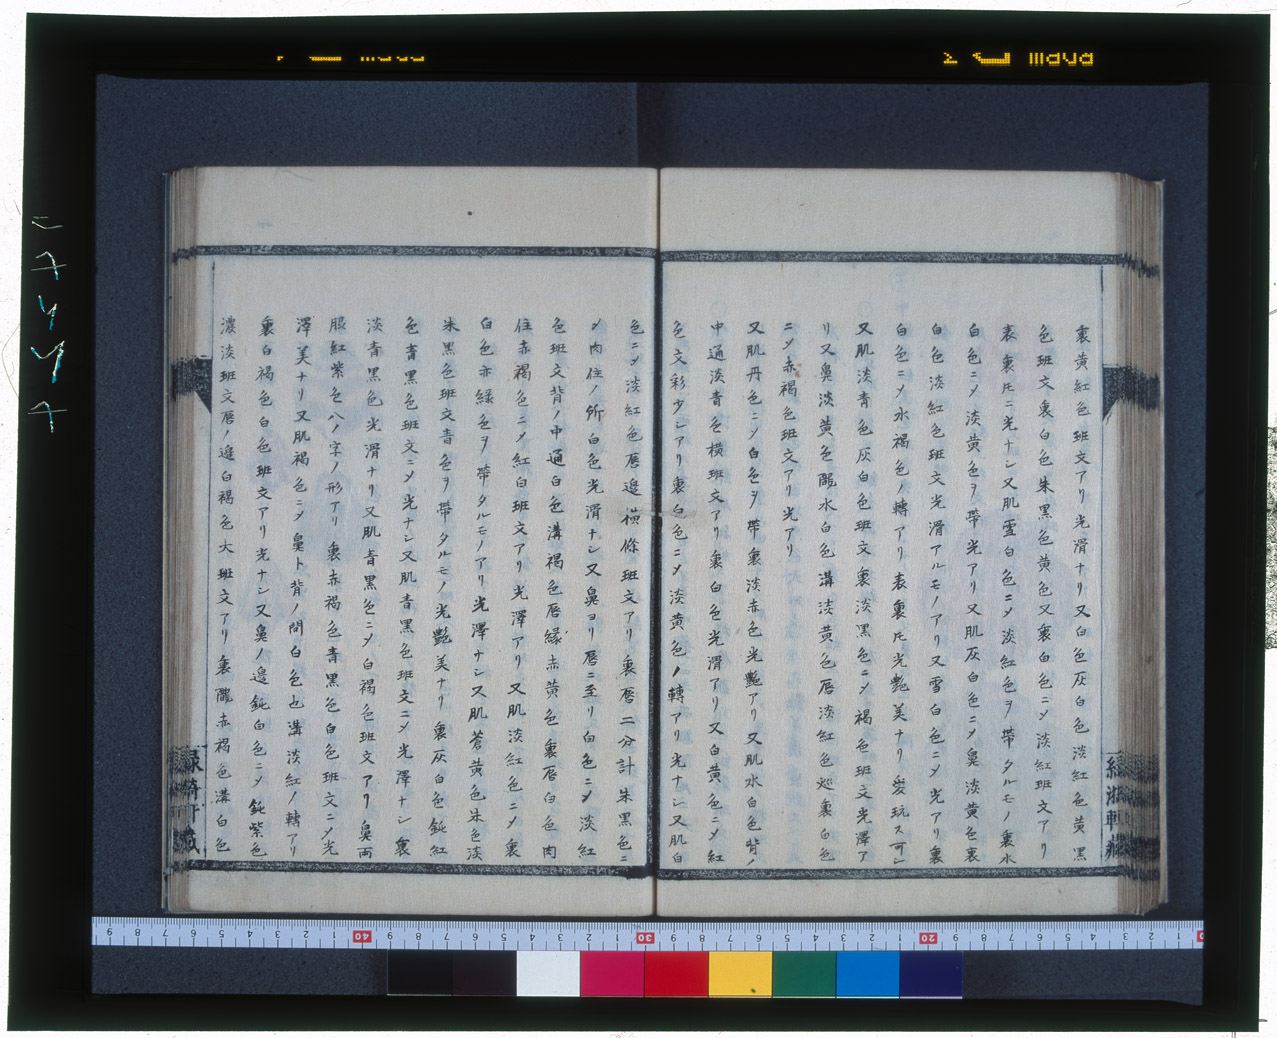 裏黄紅色班文アリ光滑ナリ又白色灰白色淡紅色黄黒
色班文裏白色朱黒色黄色又裏白色ニ〆淡紅班文アリ
表裏氏ニ光ナシ又肌雪白色ニ〆淡紅色ヲ帶タルモノ裏水
白色ニ〆淡黄色ヲ帶光アリ又肌灰白色ニ〆鼻淡黄色裏
白色淡紅色班文光滑アルモノアリ又雪白色ニ〆光アリ裏
白色ニ〆水褐色ノ轉アリ表裏氏光艷美ナリ愛玩ス可シ
又肌淡青色灰白色班文裏淡黒色ニ〆褐色班文光澤ア
リ又鼻淡黄色腮水白色溝淡黄色唇淡紅色巡裏白色
ニ〆赤褐色班文アリ光アリ
又肌丹色ニ〆白色ヲ帶裏淡赤色光艷アリ又肌水白色背ノ
中通淡青色横班文アリ裏白色光滑アリ又白黄色ニ〆紅
色文彩少シアリ裏白色ニ〆淡黄色ノ轉アリ光ナシ又肌白
色ニ〆淡紅色唇邊横條班文アリ裏唇二分計朱黒色ニ
〆肉住ノ所白色光滑ナシ又鼻ヨリ唇ニ至リ白色ニ〆淡紅
色班文背ノ中通白色溝褐色唇縁赤黄色裏唇白色肉
住赤褐色ニ〆紅白班文アリ光澤アリ又肌淡紅色ニ〆裏
白色赤緑色ヲ帶タルモノアリ光澤ナシ又肌蒼黄色朱色淡
朱黒色班文青色ヲ帶タルモノ光艷美ナリ裏灰白色鈍紅
色青黒色班文ニ〆光ナシ又肌青黒色班文ニ〆光澤ナシ裏
淡青黒色光滑ナリ又肌青黒色ニ〆白褐色班文アリ鼻両
服紅紫色八ノ字ノ形アリ裏赤褐色青黒色白色班文ニ〆光
澤美ナリ又肌褐色ニ〆鼻ト背ノ間白色也溝淡紅ノ轉アリ
裏白褐色白色班文アリ光ナシ又鼻ノ邊鈍白色ニ〆鈍紫色
濃淡班文唇ノ邊白褐色大班文アリ裏腮赤褐色溝白色